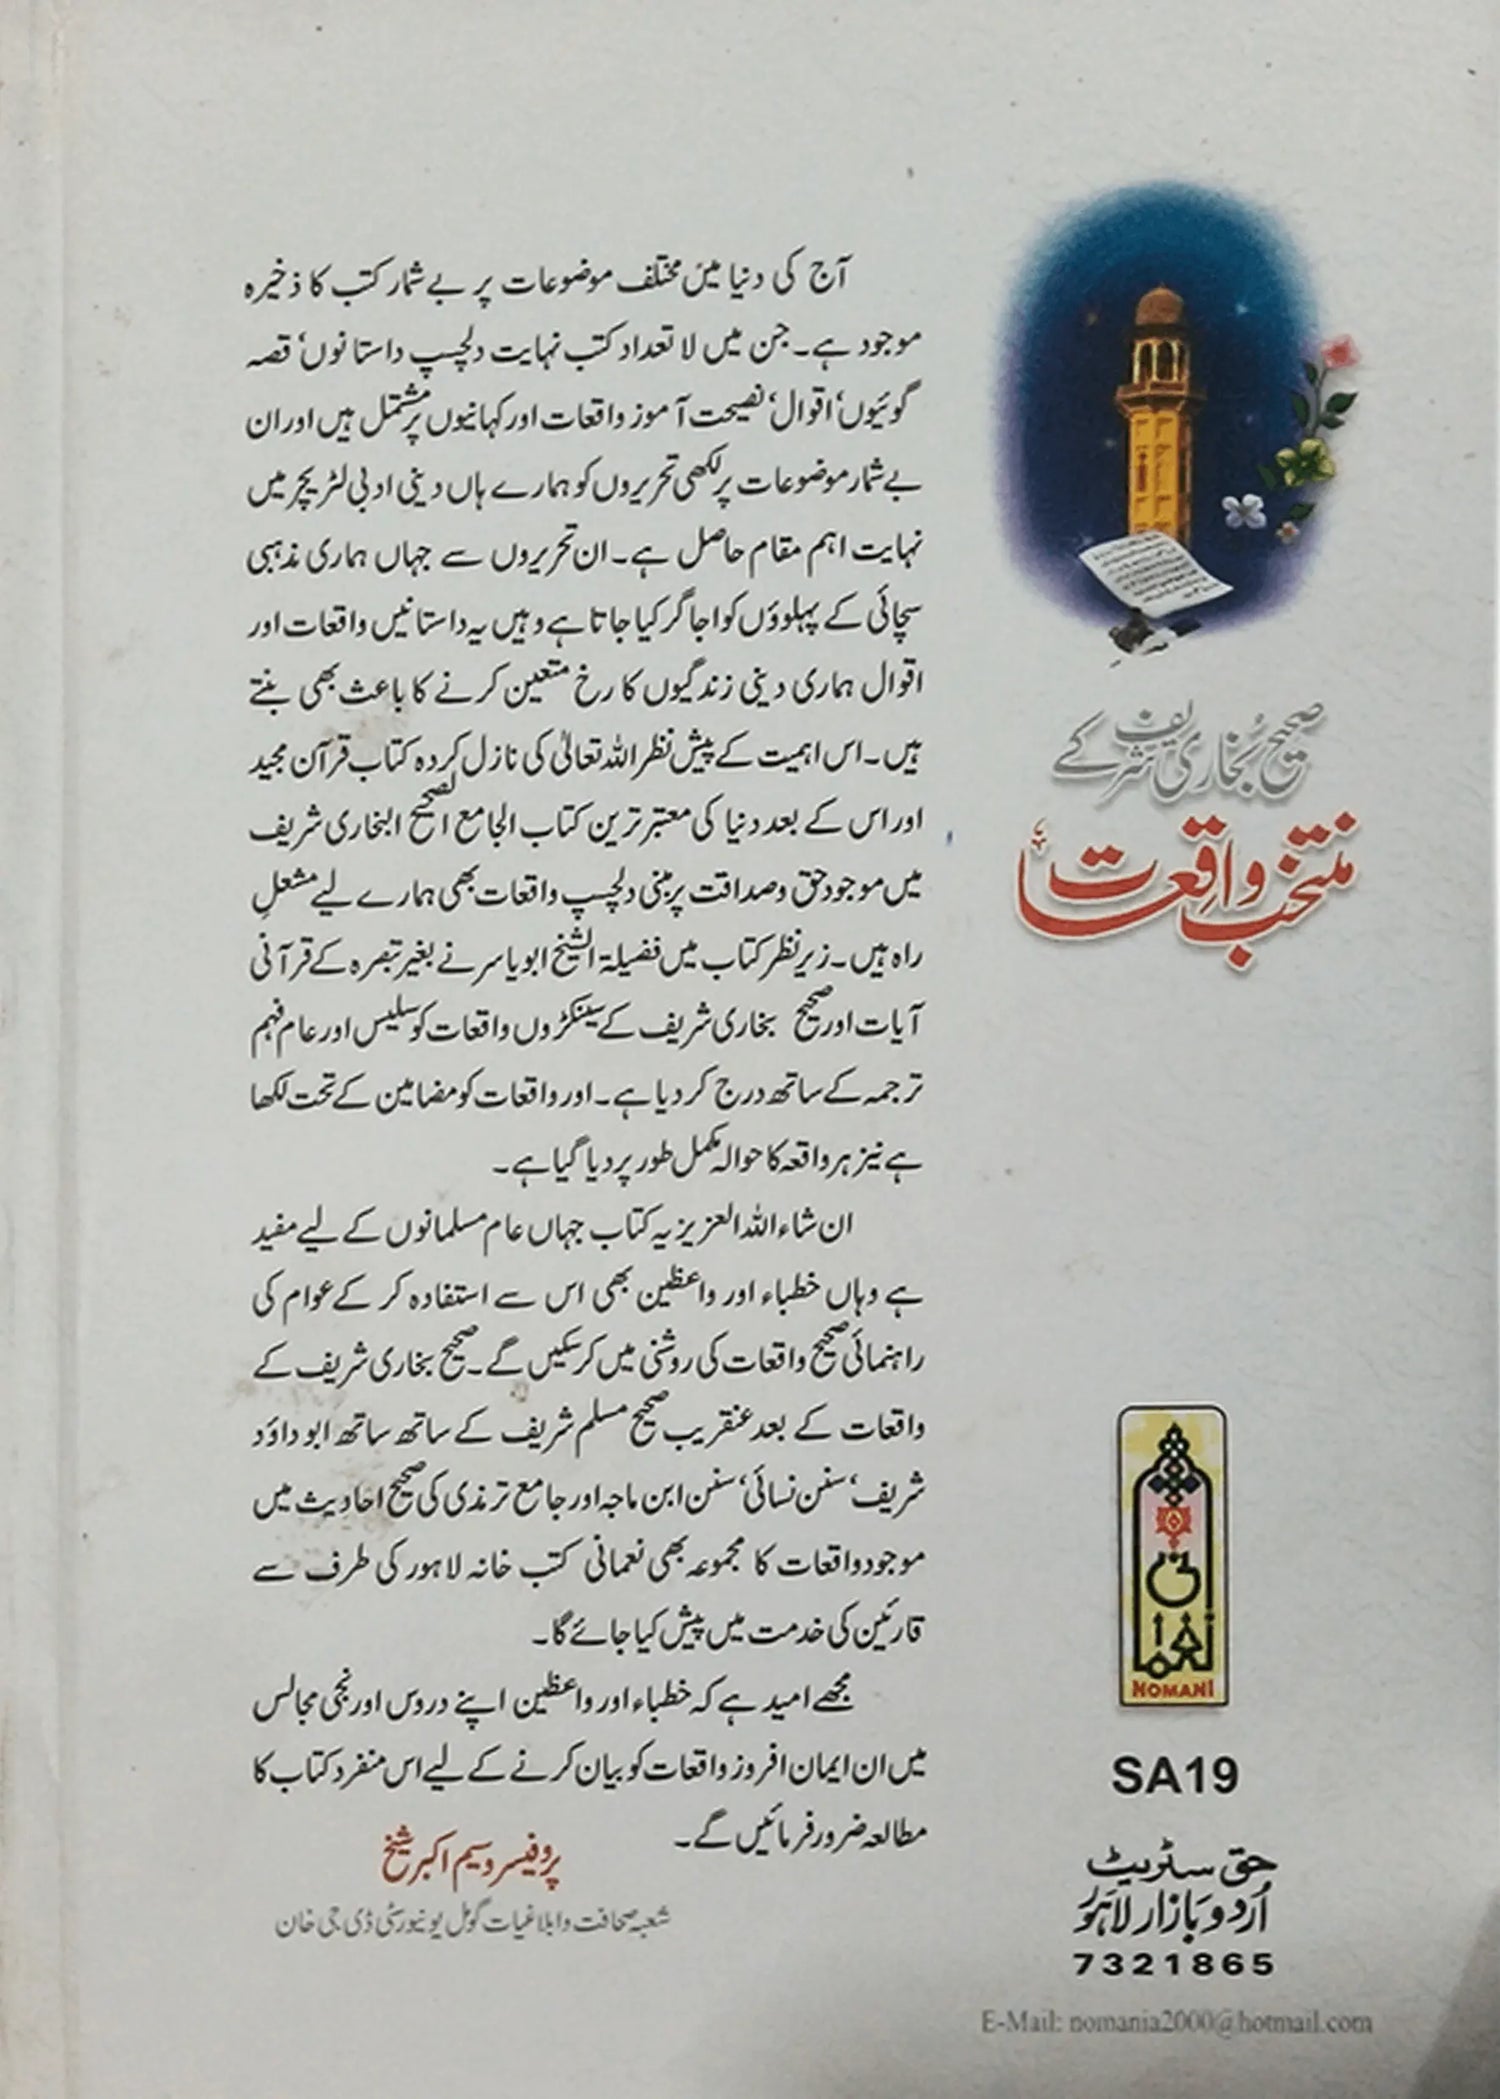 آج کی دنیا میں مختلف موضوعات پر بے شمار کتب کا ذخیرہ
موجود ہے۔ جن میں لا تعداد کتب نہایت دلچسپ داستانوں‘ قصہ
گوئیوں‘ اقوال‘ نصیحت آموز واقعات اور کہانیوں پر مشتمل ہیں اور ان
بے شمار موضوعات پر لکھی تحریروں کو ہمارے ہاں دینی ادبی لٹریچر میں
نہایت اہم مقام حاصل ہے۔ ان تحریروں سے جہاں ہماری مذہبی
سچائی کے پہلوؤں کو اجاگر کیا جاتا ہے وہیں یہ داستانیں واقعات اور
اقوال ہماری دینی زندگیوں کا رخ متعین کرنے کا باعث بھی بنتے
ہیں۔ اس اہمیت کے پیش نظر اللہ تعالیٰ کی نازل کردہ کتاب قرآن مجید
اور اس کے بعد دنیا کی معتبر ترین کتاب الجامع الصحیح البخاری شریف
میں موجود حق و صداقت پر مبنی دلچسپ واقعات بھی ہمارے لیے مشعلِ
راہ ہیں۔ زیر نظر کتاب میں فضیلۃ الشیخ ابو یاسر نے بغیر تبصرہ کے قرآنی
آیات اور صحیح بخاری شریف کے سینکڑوں واقعات کو سلیس اور عام فہم
ترجمہ کے ساتھ درج کر دیا ہے۔ اور واقعات کو مضامین کے تحت لکھا
ہے نیز ہر واقعہ کا حوالہ مکمل طور پر دیا گیا ہے۔
ان شاء اللہ العزیز یہ کتاب جہاں عام مسلمانوں کے لیے مفید
ہے وہاں خطباء اور واعظین بھی اس سے استفادہ کر کے عوام کی
راہنمائی صحیح واقعات کی روشنی میں کر سکیں گے۔ صحیح بخاری شریف کے
واقعات کے بعد عنقریب صحیح مسلم شریف کے ساتھ ساتھ ابو داؤد
شریف‘ سنن نسائی‘ سنن ابن ماجہ اور جامع ترمذی کی صحیح احادیث میں
موجود واقعات کا مجموعہ بھی نعمانی کتب خانہ لاہور کی طرف سے
قارئین کی خدمت میں پیش کیا جائے گا۔
مجھے امید ہے کہ خطباء اور واعظین اپنے دروس اور نجی مجالس
میں ان ایمان افروز واقعات کو بیان کرنے کے لیے اس منفرد کتاب کا
مطالعہ ضرور فرمائیں گے۔
پروفیسر وسیم اکبر شیخ
شعبہ صحافت و ابلاغیات گومل یونیورسٹی ڈی جی خان
صحیح بخاری شریف کے
منتخب واقِعات
نعمانی
NOMANI
SA19
حق سٹریٹ
اُردو بازار لاہور
7321865
E-Mail: nomania2000@hotmail.com